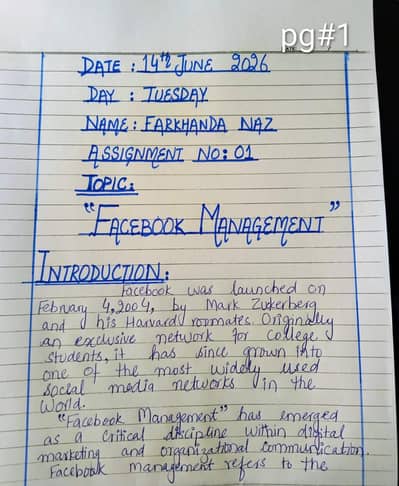 pg#1
DATE : 14th JUNE 2026
DAY : TUESDAY
NAME : FARKHANDA NAZ
ASSIGNMENT NO: 01
TOPIC:
"FACEBOOK MANAGEMENT"
INTRODUCTION:
Facebook was launched on
February 4, 2004, by Mark Zukerberg
and his Harvard roomates. Originally
an exclusive network for college
students, it has since grown into
one of the most widely used
social media networks in the
world.
"Facebook Management" has emerged
as a critical discipline within digital
marketing and organizational communication.
Facebook management refers to the